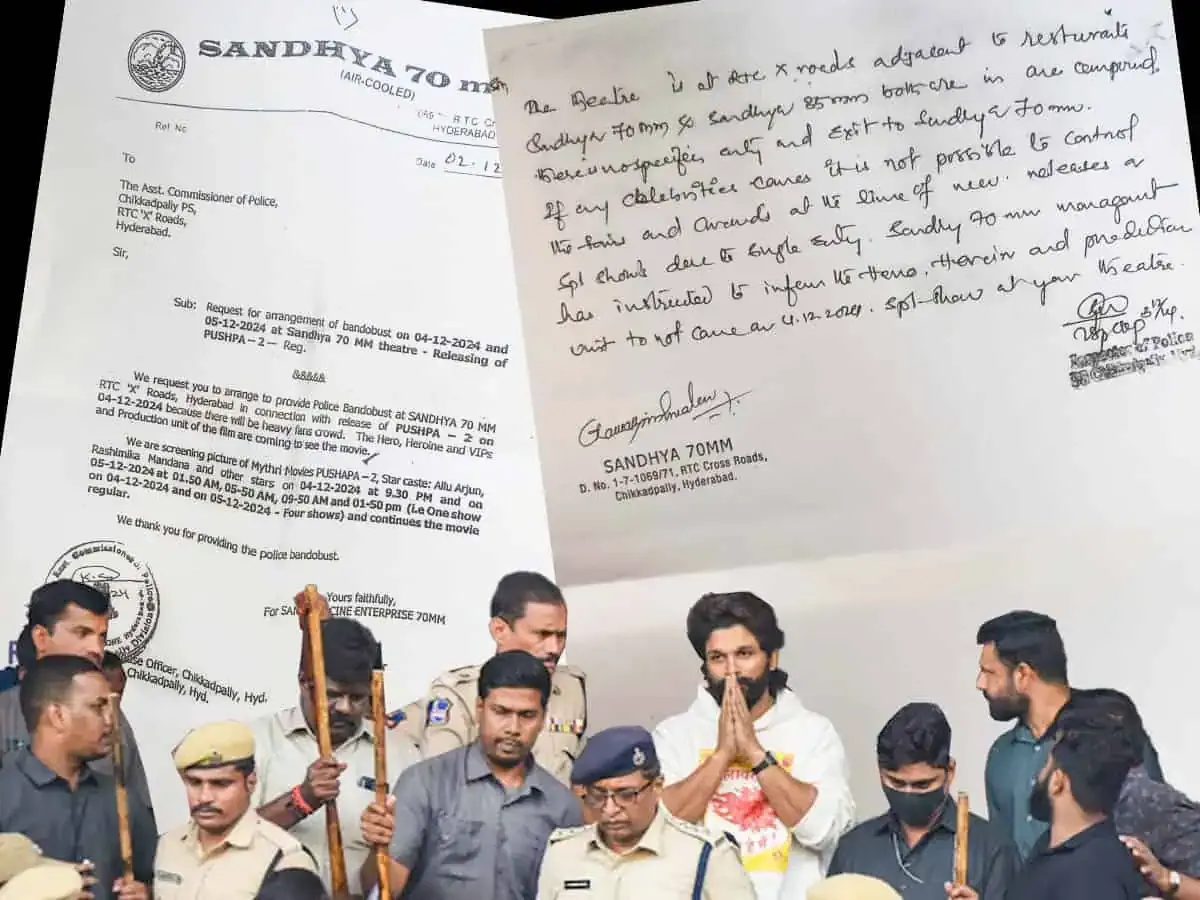 SANDHYA 70 mm
(AIR-COOLED)
RTC
HYDERABAD
Ref. No.
Date 02.12
To
The Asst. Commissioner of Police,
Chikkadpally PS,
RTC 'X' Roads,
Hyderabad.
Sir,
Sub: Request for arrangement of bandobust on 04-12-2024 and
05-12-2024 at Sandhya 70 MM theatre - Releasing of
PUSHPA – 2 – Reg.
&&&&&
We request you to arrange to provide Police Bandobust at SANDHYA 70 MM
RTC 'X' Roads, Hyderabad in connection with release of PUSHPA – 2 on
04-12-2024 because there will be heavy fans crowd. The Hero, Heroine and VIPs
and Production unit of the film are coming to see the movie.
We are screening picture of Mythri Movies PUSHAPA – 2, Star caste: Allu Arjun,
Rashimika Mandana and other stars on 04-12-2024 at 9.30 PM and on
05-12-2024 at 01.50 AM, 05-50 AM, 09-50 AM and 01-50 pm (Le One show
on 04-12-2024 and on 05-12-2024 - Four shows) and continues the movie
regular.
We thank you for providing the police bandobust.
Yours faithfully,
For SAN CINE ENTERPRISE 70MM
Asst Commissioner of Police
Division
Officer, Chikkadpally, Hyd.
Chikkadpally, Hyd.
The Theatre is at RTC X roads adjacent to resturaits
Sandhya 70MM & Sandhya 35mm both are in are compound.
there is no specific enty and Exit to Sandhya 70mm.
If any celebrities comes it is not possible to control
the fans and crowds at the time of new releases or
Spl shows due to single Enty. Sandhy 70mm managmt
has instructed to inform the Hero, Heroin and production
unit to not come on 4.12.2024. spl-show at your theatre.
Inspector of Police
SANDHYA 70MM
D. No. 1-7-1069/71, RTC Cross Roads,
Chikkadpally, Hyderabad.